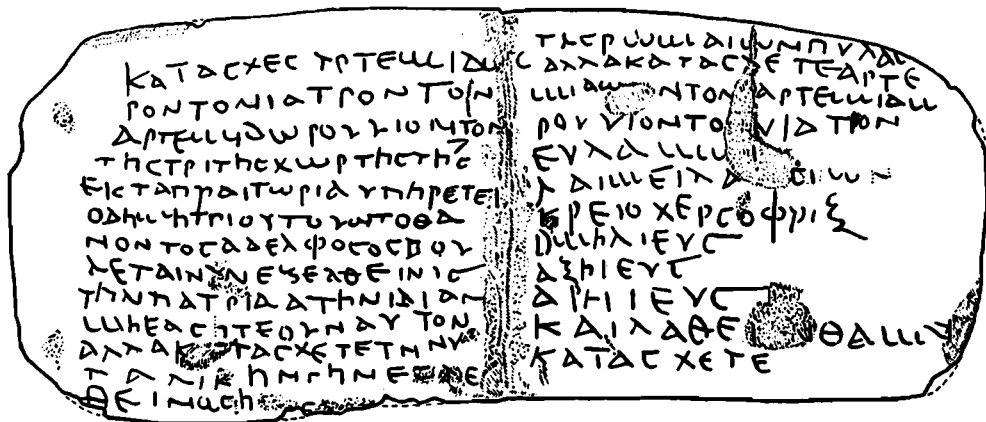 ΚΑΤΑϹΧΕϹ ΤΡΤΕΜΙΔΩ
ΡΟΝΤΟΝΙΑΤΡΟΝΤΟΝ
ΑΡΤΕΜΗΔΩΡΟΥΥΙΟΝΤΟΝ
ΤΗϹΤΡΙΤΗϹΧΩΡΤΗϹΤΗϹ
ΕΚΤΑΠΡΑΙΤΩΡΙΑΥΠΗΡΕΤΕΙ
ΟΔΗΜΗΤΡΙΟΥΤΟΥΩΤΟΘΑ
ΝΟΝΤΟϹΑΔΕΛΦΟϹΟϹΒΟΥ
ΛΕΤΑΙΝΥΝΕΞΕΛΘΕΙΝΙϹ
ΤΗΝΠΑΤΡΙΔΑΤΗΝΙΔΙΑΝ
ΜΗΕΑϹΗΤΕΟΥΝΑΥΤΟΝ
ΑΛΛΑΚΑΤΑϹΧΕΤΕΤΗΝΥ
ΤΑΛΙΚΗΝΓΗΝ
ΘΕΙΝ
ΤΗϹΡΩΜΑΙΩΝΠΥΛΑϹ
ΑΛΛΑΚΑΤΑϹΧΕΤΕΑΡΤΕ
ΜΙΔΩΡΟΝΤΟΝΑΡΤΕΜΙΔΩ
ΡΟΥΥΙΟΝΤΟΝΙΑΤΡΟΝ
ΕΥΛΑΜΩ
ΛΑΙΜΕΙΛΑ ϹΙΩΝ
ΚΡΕΙΟΧΕΡϹΟΦΡΙΞ
ΩΜΗΛΙΕΥϹ
ΑΞΗΙΕΥϹ
ΑΡΗΙΕΥϹ
ΚΑΙΛΑΘΕ ΘΑΜΥ
ΚΑΤΑϹΧΕΤΕ